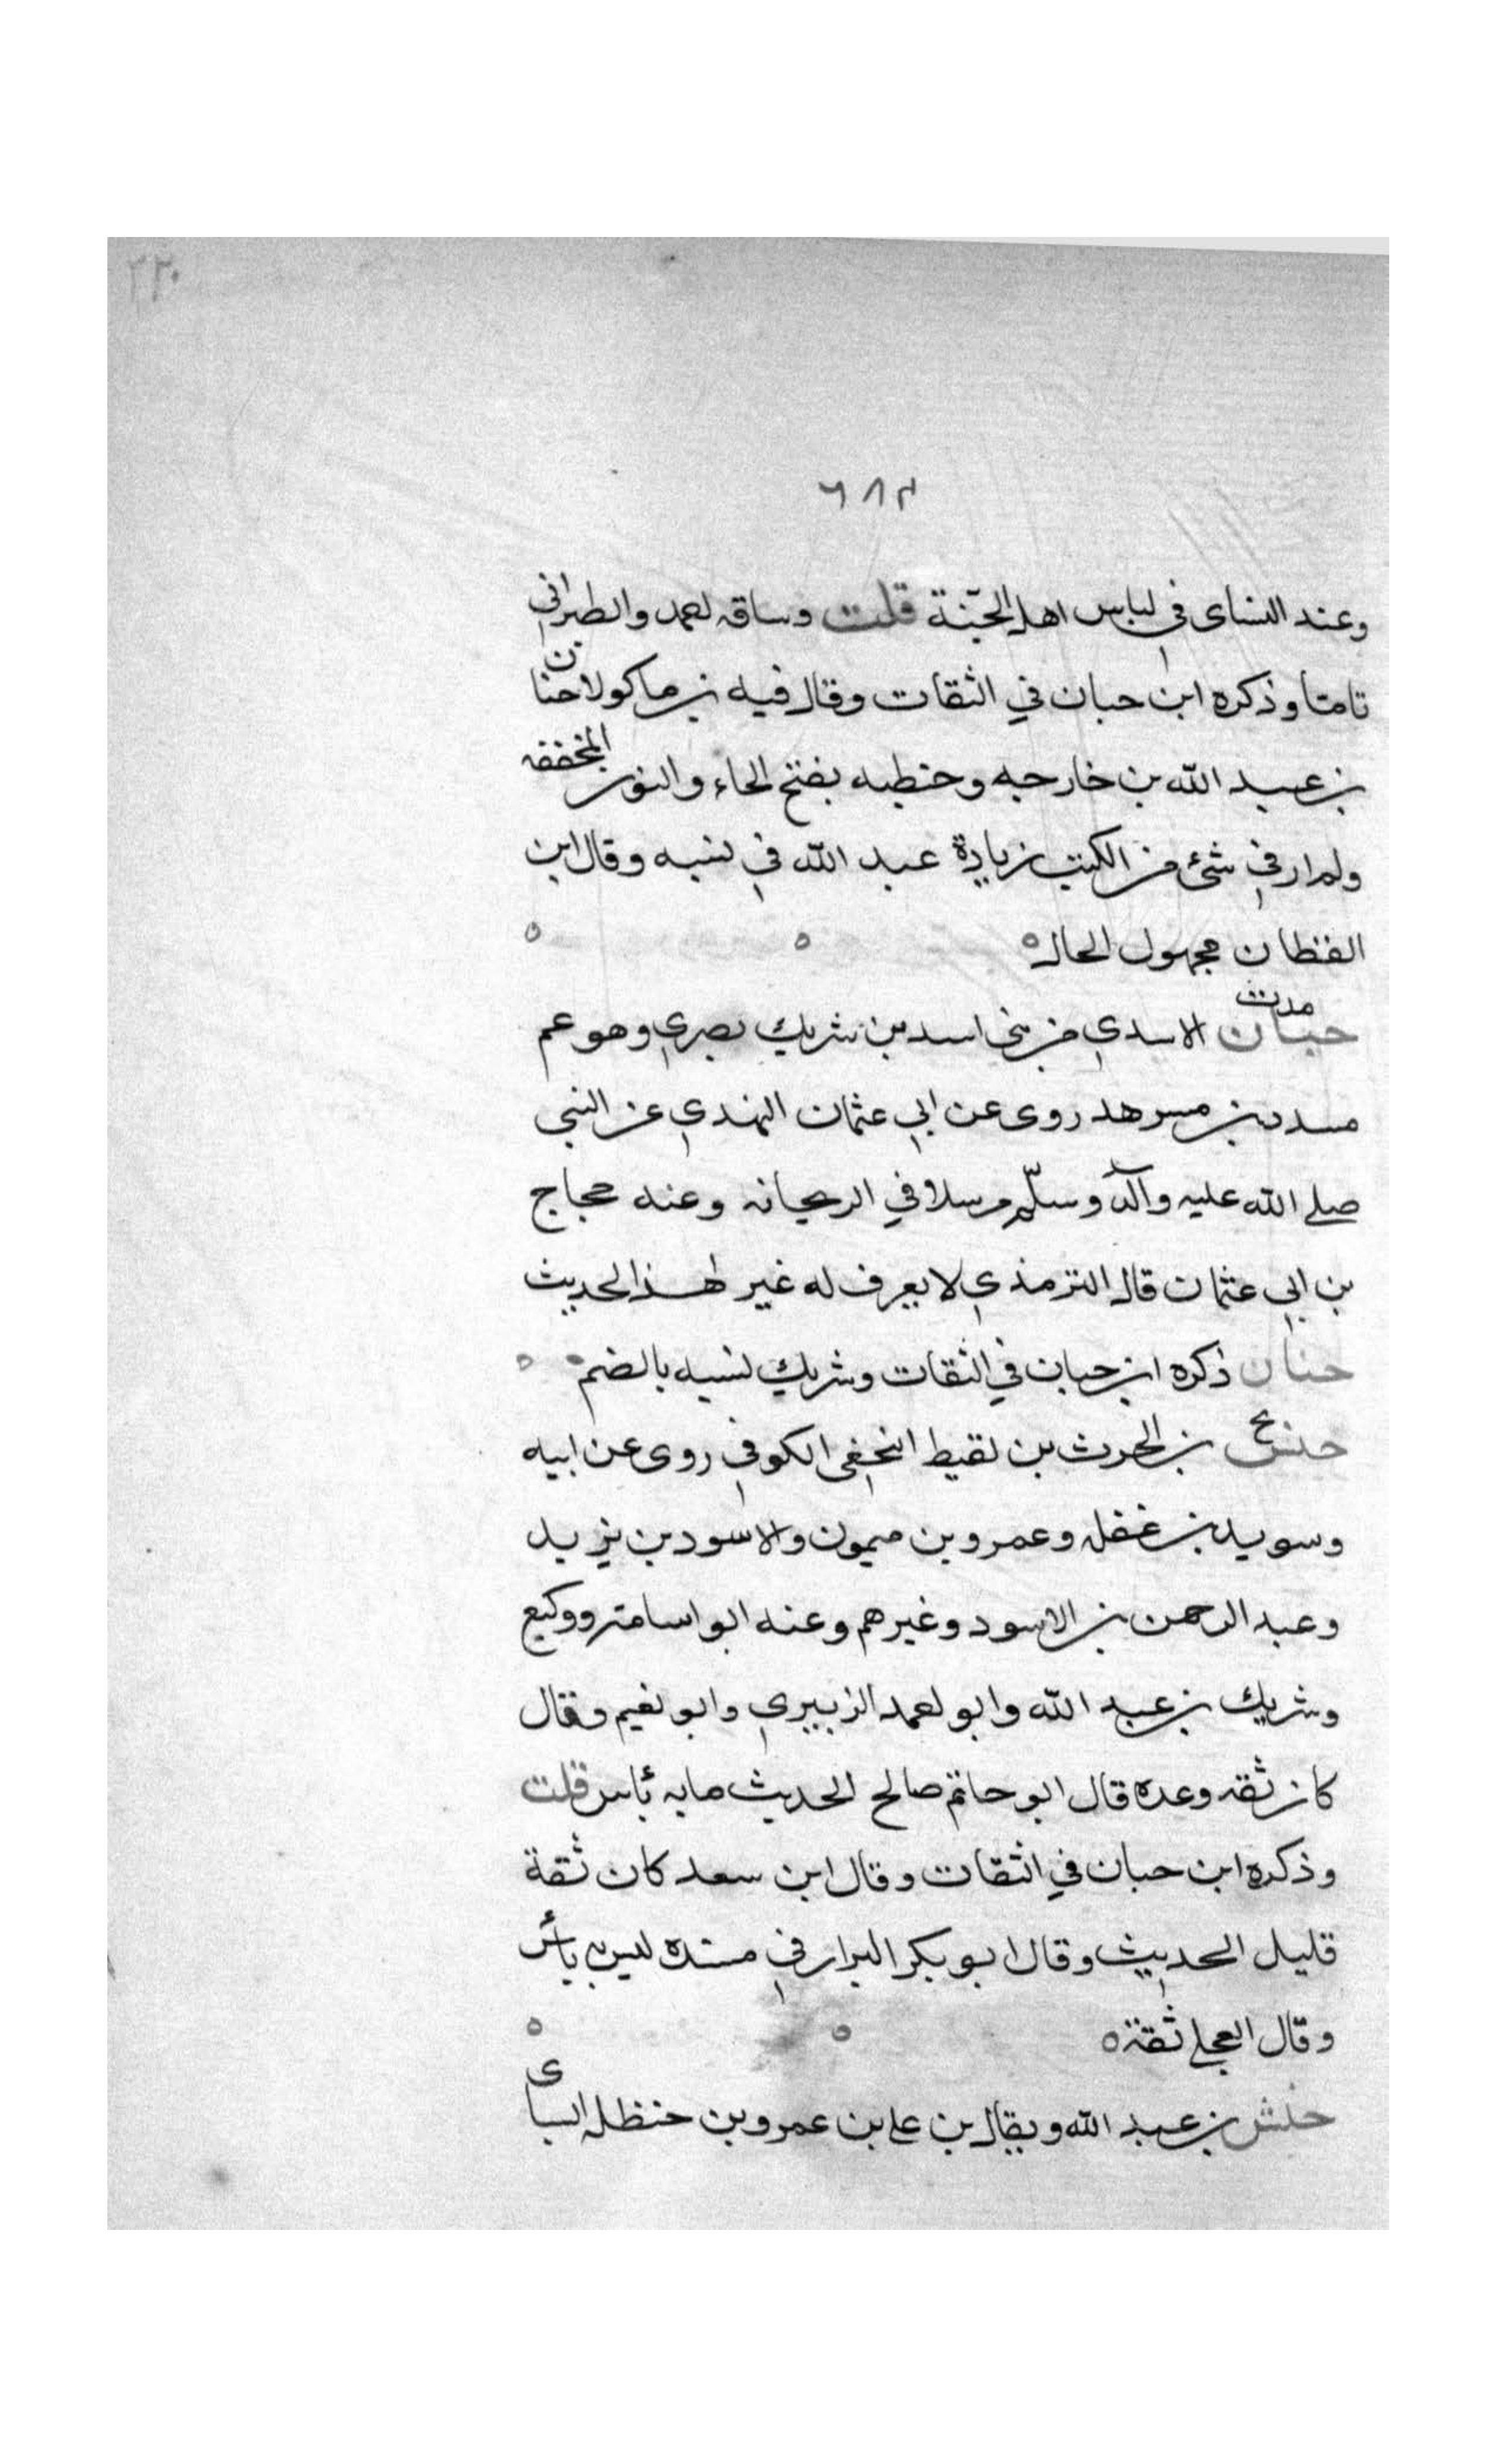 ٢٢٠
٦٨٣
وعند النساى فى لباس اهل الجنة قلت وساقه احمد والطبرانى
تاما وذكره ابن حبان في الثقات وقال فيه بن ماكولا حنان
بن عبيد الله بن خارجه وحنطبه بفتح الحاء والنون المخففه
ولم ار في شئ من الكتب زيادة عبد الله في نسبه وقال ابن
القطان مجهول الحال ه ه ه
مدت
حبان الاسدي من بني اسد بن شريك بصري وهو عم
مسدد بن مسرهد روى عن ابي عثمان النهدي عن النبي
صلے الله عليه وآله وسلّم مرسلا في الريحانه وعنه حجاج
بن ابي عثمان قال الترمذي لا يعرف له غير هذا الحديث
حنان ذكره ابن حبان في الثقات وشريك نسبه بالضم ه
حنش بن الحرث بن لقيط النخعى الكوفي روى عن ابيه
وسويد بن غفله وعمرو بن ميمون والاسود بن يزيد
وعبد الرحمن بن الاسود وغيرهم وعنه ابو اسامة ووكيع
وشريك بن عبد الله وابو احمد الزبيري وابو نعيم وقال
كان ثقه وعده قال ابو حاتم صالح الحديث ما به بأس قلت
وذكره ابن حبان في الثقات وقال ابن سعد كان ثقة
قليل الحديث وقال ابو بكر البزار في مسنده ليس به بأس
وقال العجلے ثقة ه ه ه
حنش بن عبد الله ويقال بن علے بن عمرو بن حنظله السباى